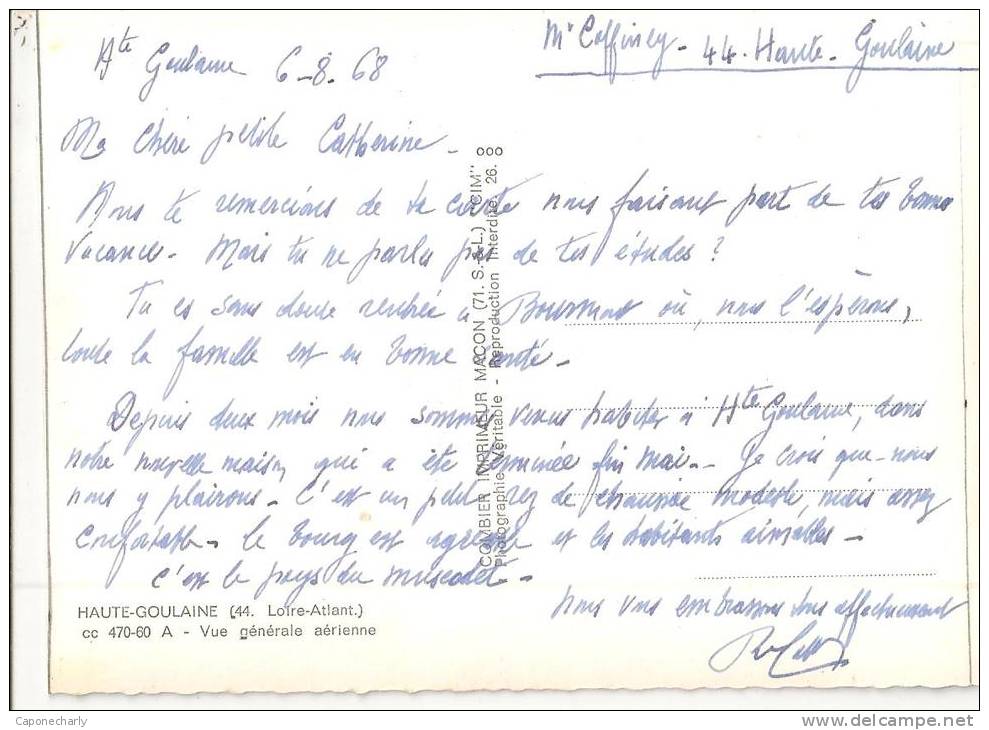 Mr Coffiney - 44. Haute - Goulaine
Hte Goulaine 6-8-68
Ma chère petite Catherine -
Nous te remercions de ta carte nous faisant part de tes bonnes
vacances. Mais tu ne parles pas de tes études ?
Tu es sans doute rentrée à où, nous l'espérons,
toute la famille est en bonne santé -
Depuis deux mois nous sommes venus habiter à Hte Goulaine, dans
notre nouvelle maison, qui a été terminée fin Mai. Je crois que nous
nous y plairons - C'est un petit rez de chaussée modeste, mais assez
confortable. Le bourg est agréable et les habitants aimables -
C'est le pays du muscadet -
Nous vous embrassons tous affectueusement
COMBIER IMPRIMEUR MACON (71. S.-&-L.) "CIM"
Photographie Véritable - Reproduction Interdite. 26.
HAUTE-GOULAINE (44. Loire-Atlant.)
cc 470-60 A - Vue générale aérienne
Caponecharly
www.delcampe.net